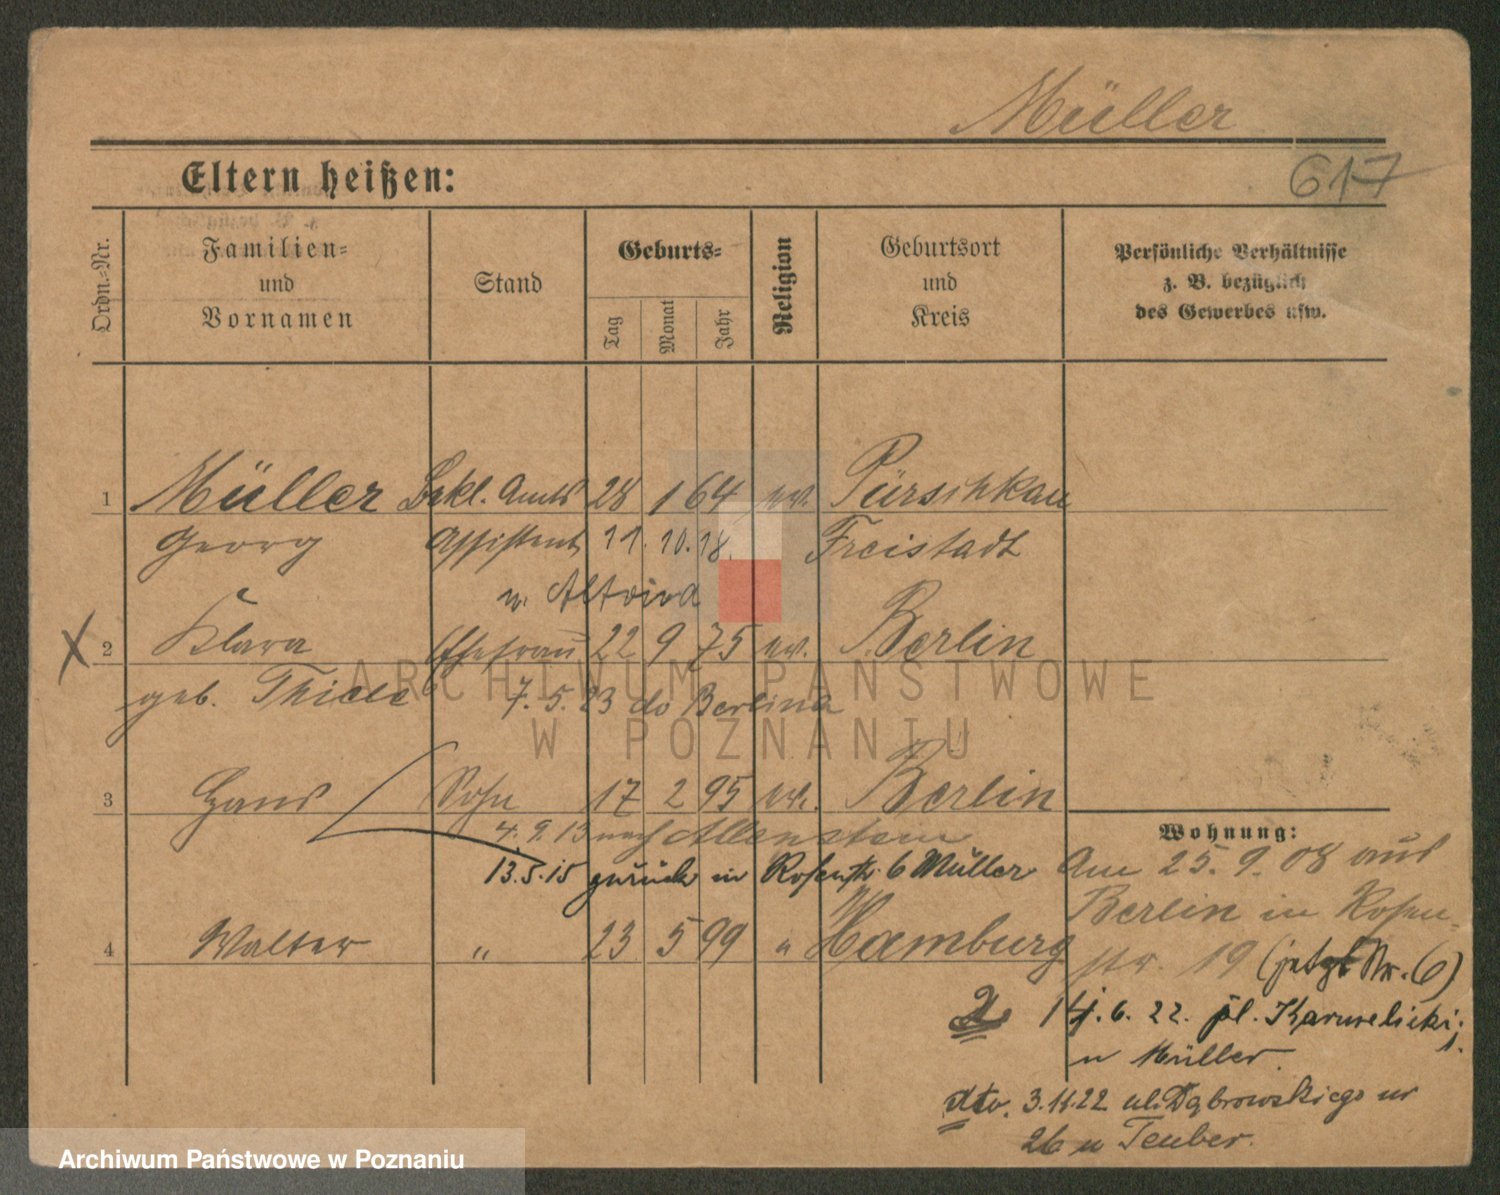 Müller
617
Eltern heißen:
Ordn.-Nr.
Familien-
und
Vornamen
Stand
Geburts-
Tag
Monat
Jahr
Religion
Geburtsort
und
Kreis
Persönliche Verhältnisse
z. B. bezüglich
des Gewerbes usw.
1 Müller Amts 28 1 64 ev. Pürschkau
Georg Assistent 11. 10. 18. Freistadt
n.
2 Klara Ehefrau 22 9 75 ev. Berlin
geb. Thiele 7. 5. 23 do Berlina
3 Hans Sohn 17 2 95 ev. Berlin
4. 9. 13 nach Allenstein
13.5.15 zurück in Rosenstr. 6 Müller
4 Walter " 23 5 99 " Hamburg
Wohnung:
Am 25. 9. 08 aus
Berlin in Rosen-
str. 19 (jetzt Nr. 6)
2 14. 6. 22. pl. Karmelicki 1.
u Müller.
dto. 3.11.22 ul. Dąbrowskiego nr
26 u Teuber.
ARCHIWUM PAŃSTWOWE
W POZNANIU
Archiwum Państwowe w Poznaniu